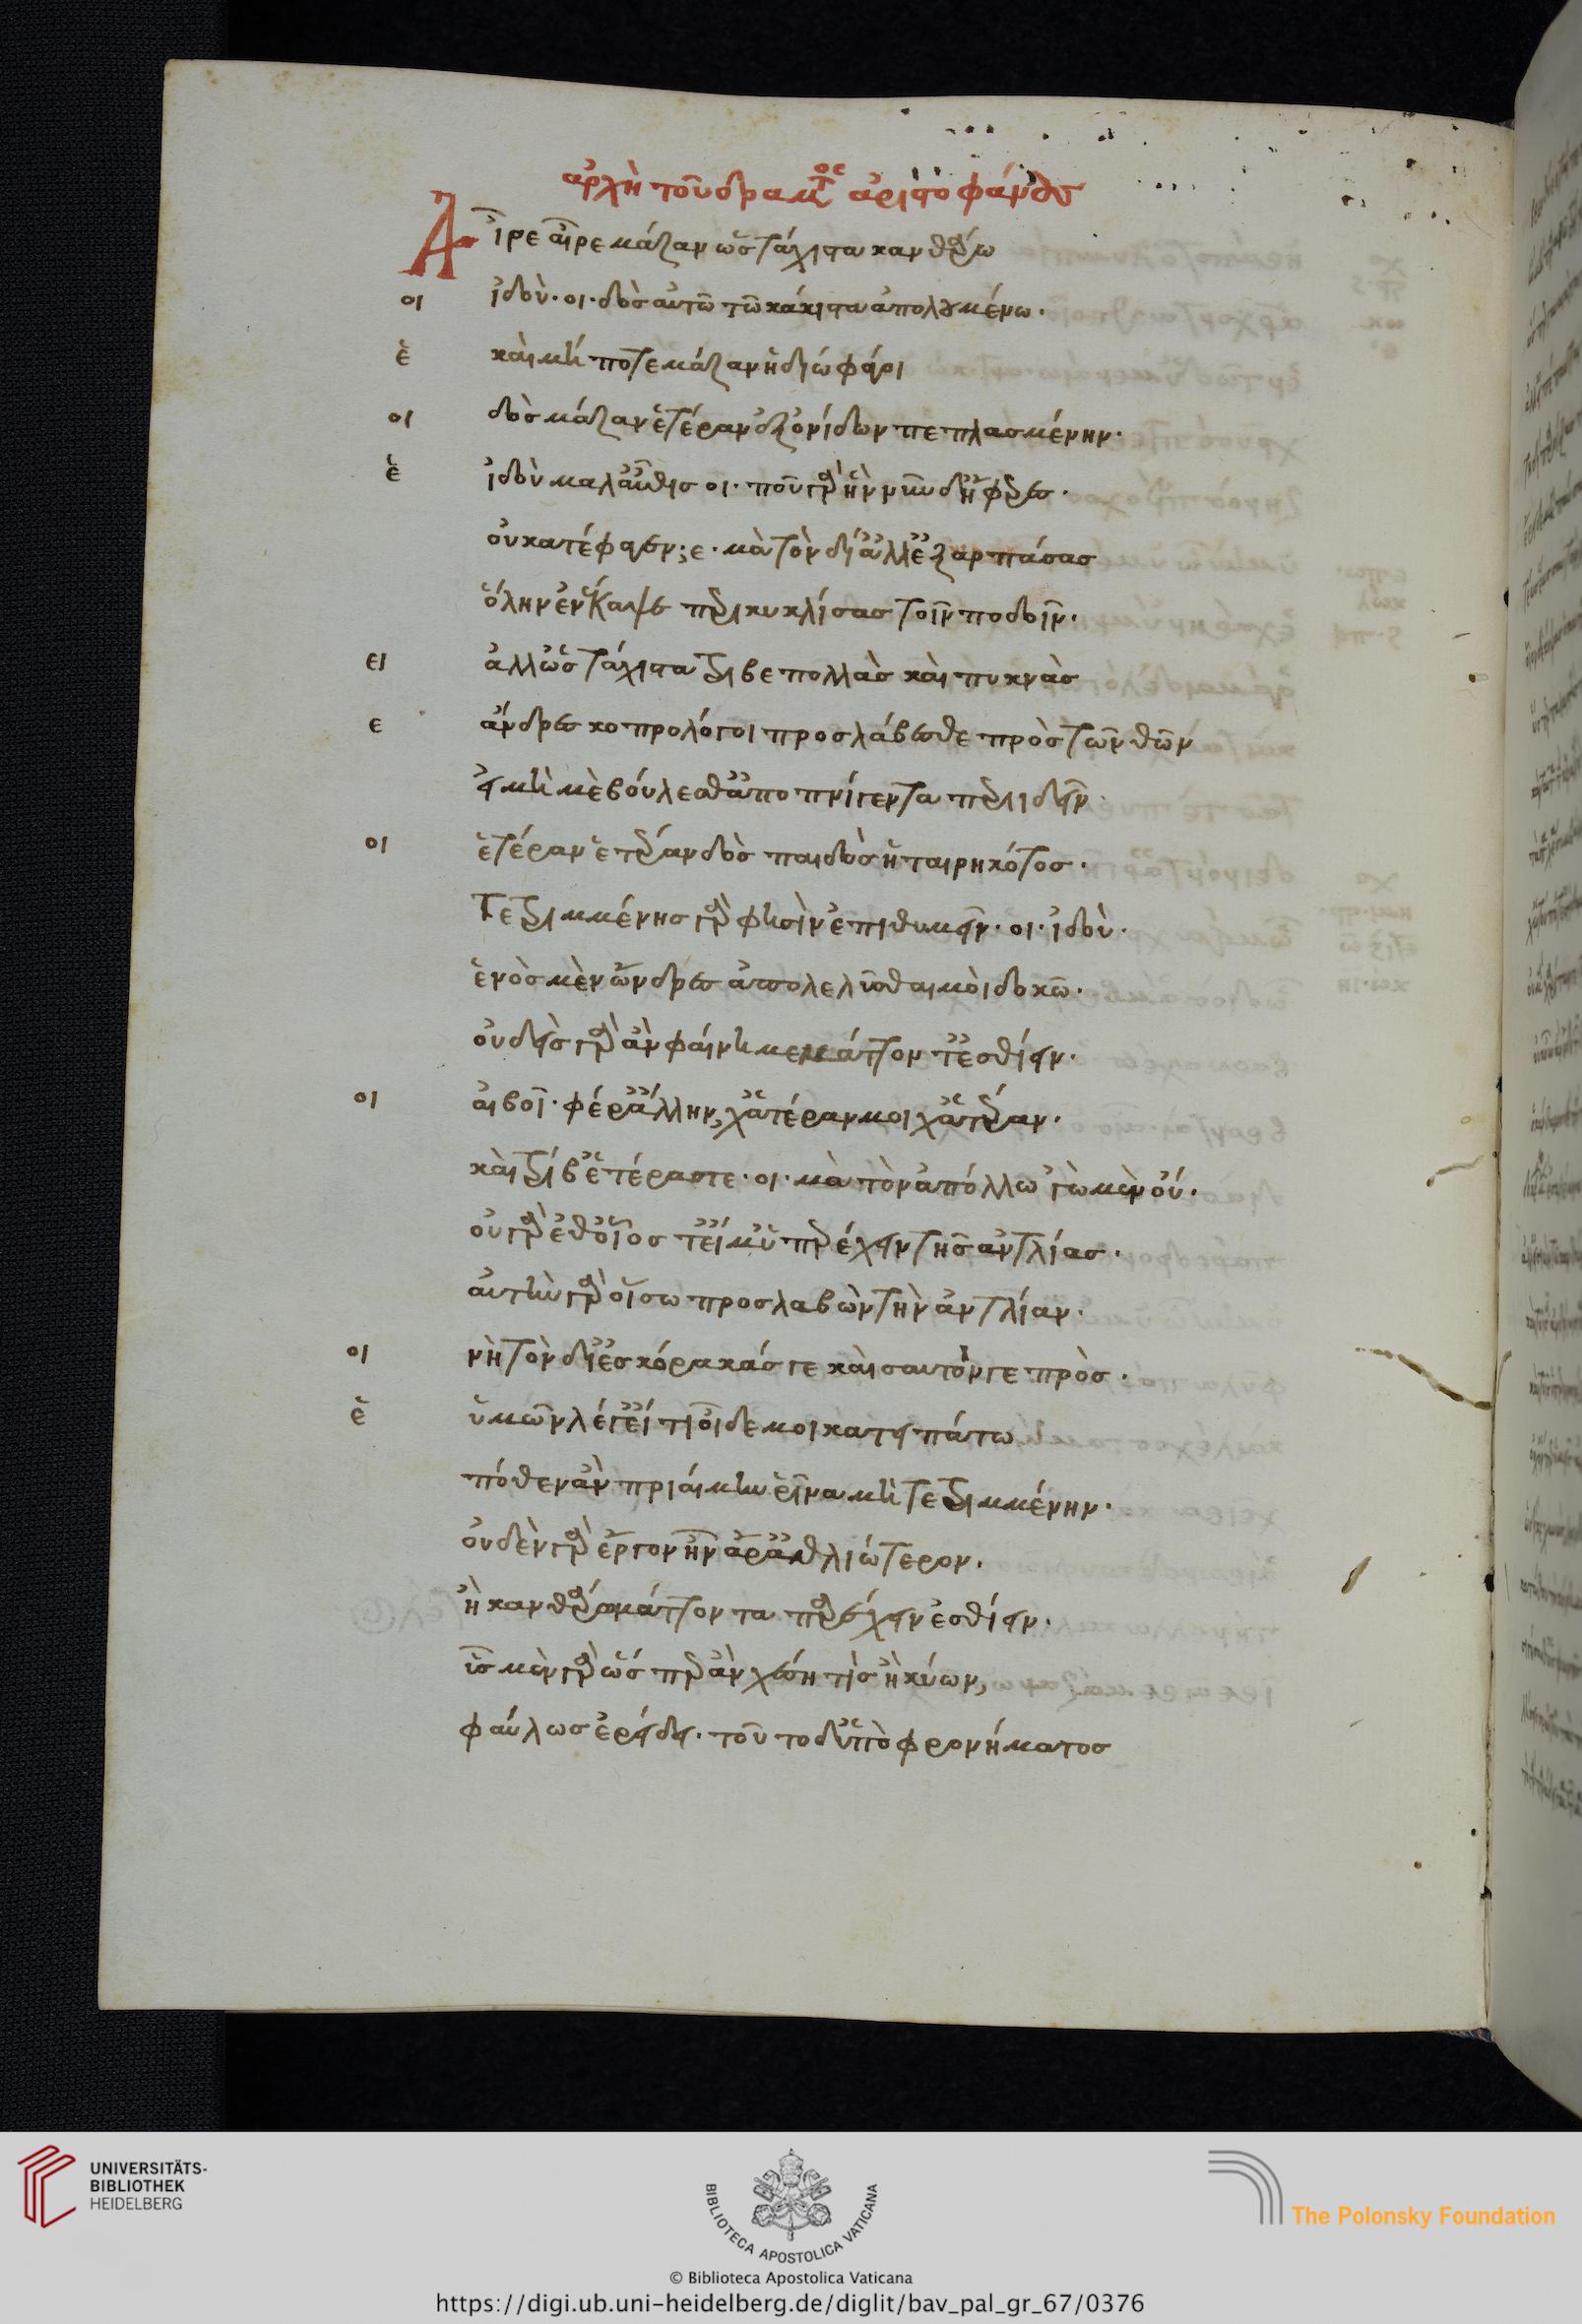 ἀρχὴ τοῦ δράματος ἀριστοφάνους
Αἶρε αἶρε μάζαν ὡς τάχιστα κανθάρω
οι ἰδού· οι· δὸς αὐτῶ τῶ κάκιστα ἀπολουμένω·
ἑ καὶ μή ποτε μάζαν ἡδίω φάγοι
οι δὸς μάζαν ἑτέραν ἐξ ὀνίδων πεπλασμένην·
ἑ ἰδοὺ μαλ αὖθις οι· ποῦ γὰρ ἣν νῦν δὴ φερες·
οὐ κατέφαγεν; ε· μὰ τὸν δί ἀλλ ἐξαρπάσας
ὅλην ἐνέκαψε περικυκλίσας τοῖν ποδοῖν·
ει ἀλλ ὡς τάχιστα τρίβε πολλὰς καὶ πυκνὰς
ε ἄνδρες κοπρολόγοι προσλάβεσθε πρὸς τῶν θεῶν
εἰ μή με βούλεσθ ἀποπνίγεντα περιιδεῖν
οι ἑτέραν ἑτέραν δὸς παιδὸς ἡταιρηκότος·
τετριμμένης γὰρ φησὶν ἐπιθυμεῖν· οι· ἰδού·
ἑνὸς μὲν ὦνδρες ἀπολελῦσθαι μοὶ δοκῶ·
οὐδεὶς γὰρ ἂν φαίη με μάττοντ ἐσθίειν·
οι αἰβοῖ· φέρ ἄλλην, χἀτέραν μοι χἀτέραν·
καὶ τρίβ ἑτέρας τε· οι· μὰ τὸν ἀπόλλω γὼ μὲν οὔ·
οὐ γὰρ ἔθ οἷος τ εἰμ ὑπερέχειν τῆς ἀντλίας·
αὐτὴν γὰρ οἴσω προσλαβὼν τὴν ἀντλίαν·
οι νὴ τὸν δί ἐς κόρακάς γε καὶ σαυτόν γε πρὸς·
ἑ ὑμῶν λέγ εἴ τι οἶδε μοι κατειπάτω
πόθεν ἂν πριαίμην ῥῖνα μὴ τετριμμένην·
οὐδὲν γὰρ ἔργον ἦν ἄρ ἀθλιώτερον·
ἢ κανθάρω μάττοντα παρέχειν ἐσθίειν·
ὗς μὲν γὰρ ὥσπερ ἂν χέση τὶς ἢ κύων,
φαύλως ἐρείδει· τοῦτο δ ὑπὸ φρονήματος
UNIVERSITÄTS-
BIBLIOTHEK
HEIDELBERG
BIBLIOTECA APOSTOLICA VATICANA
The Polonsky Foundation
© Biblioteca Apostolica Vaticana
https://digi.ub.uni-heidelberg.de/diglit/bav_pal_gr_67/0376